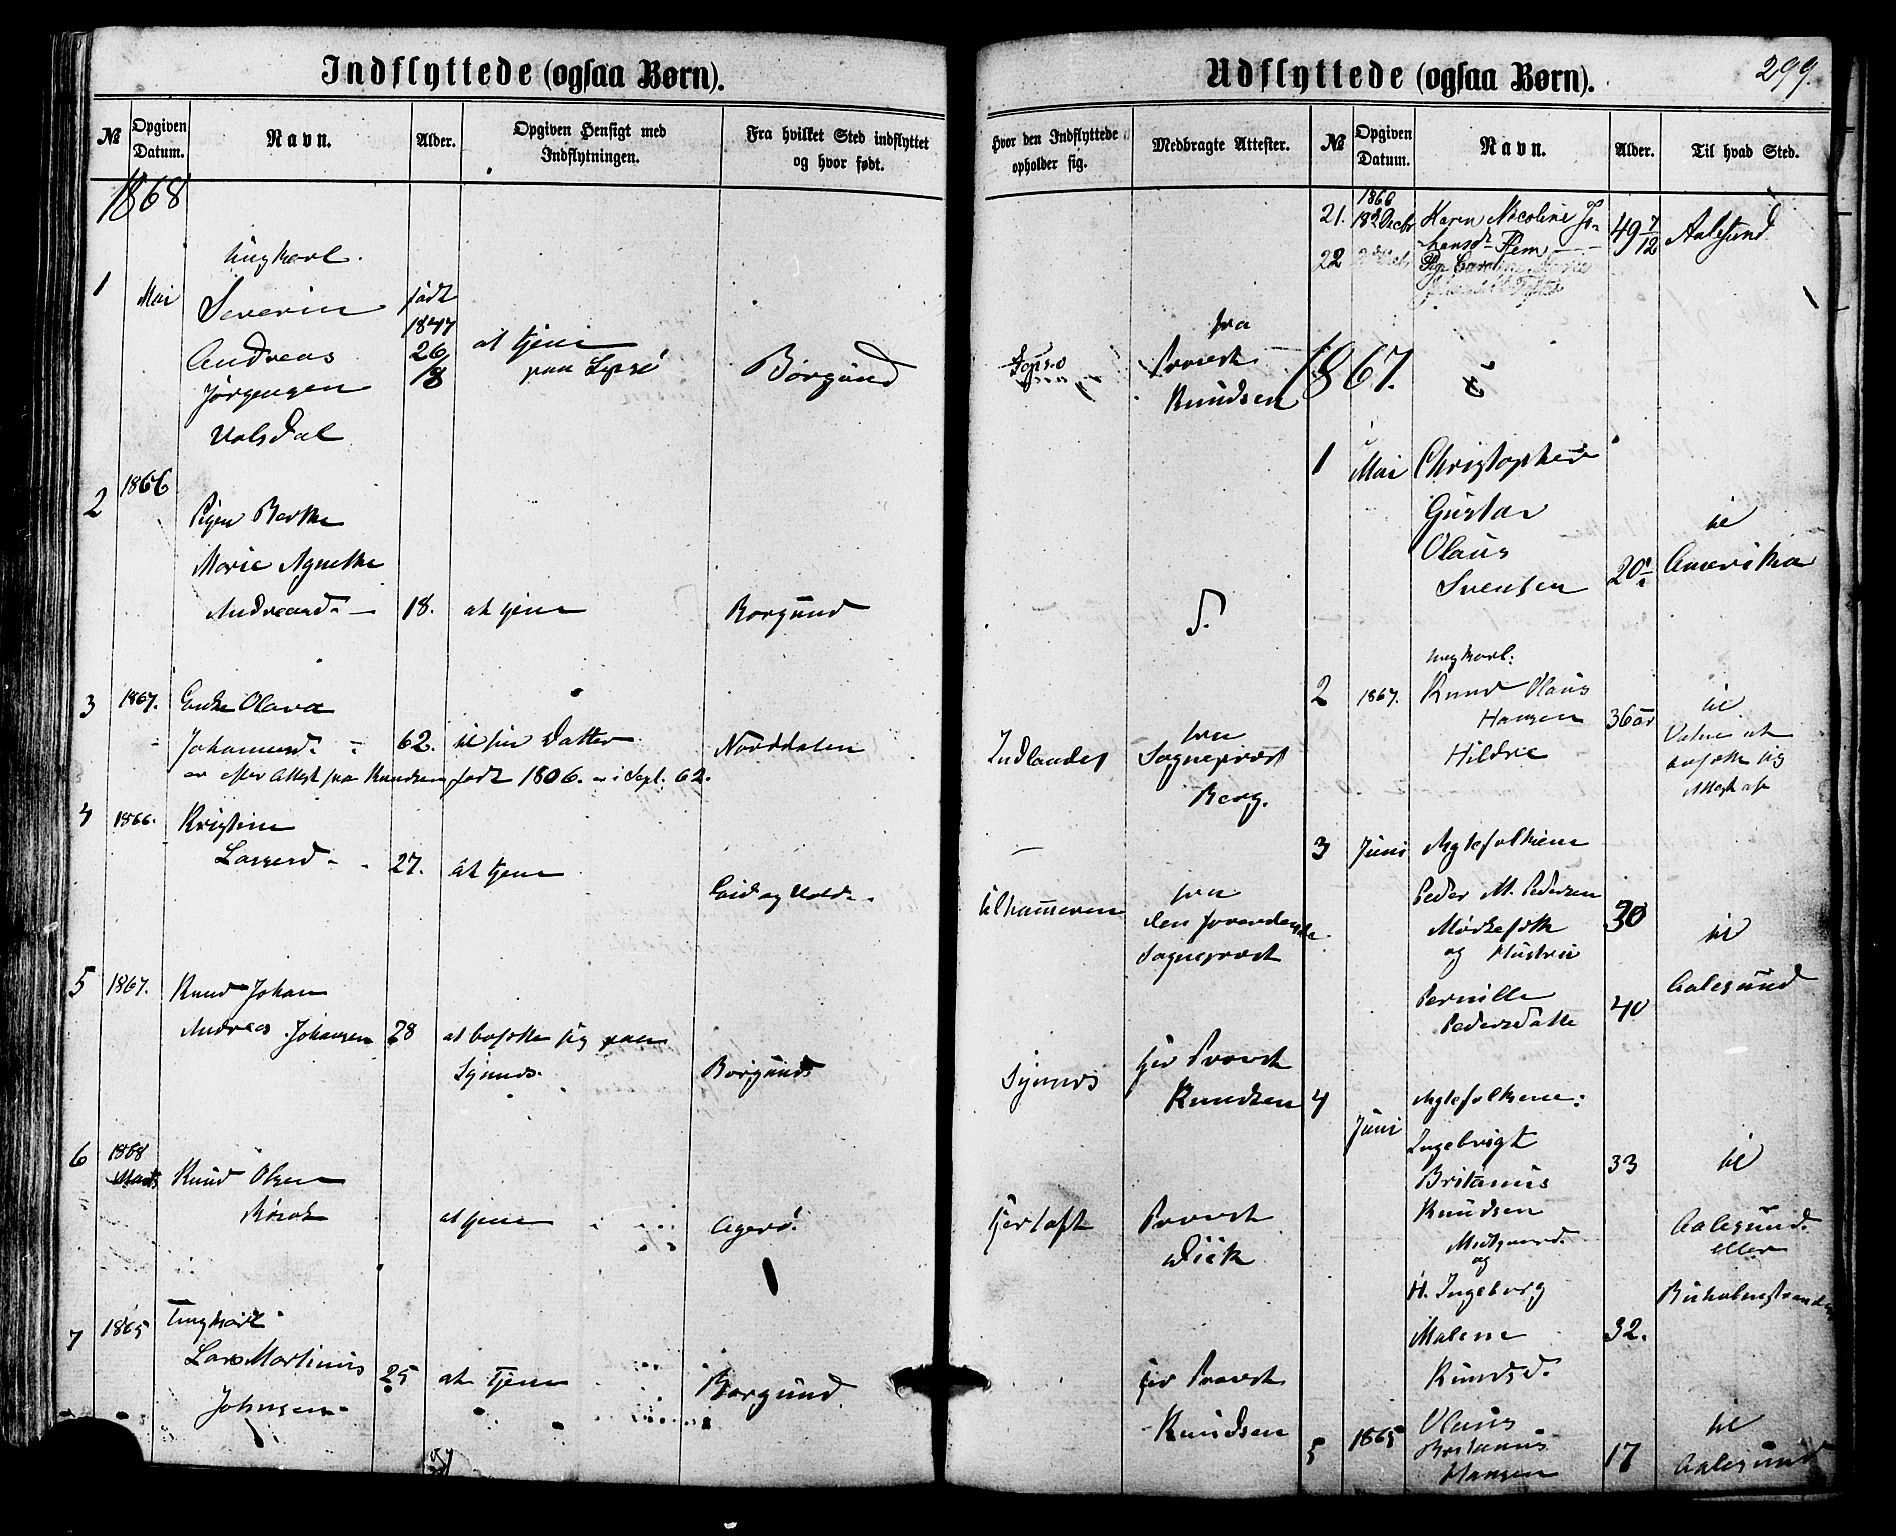 Indflyttede (ogsaa Børn).
№
Opgiven Datum.
Navn.
Alder.
Opgiven Hensigt med Indflytningen.
Fra hvilket Sted indflyttet og hvor født.
1868
1
Mai
Ungkarl.
Severin
Andreas
Jørgensen
Volsdal
født
1847
26/
18
at tjene
paa
Borgund
2
1866
Pigen Berthe
Marie Agnethe
Andreasd. —
18.
at tjene
Borgund
3
1867.
Enke Olava
Johannesd.
62.
til sin Datter
Norddalen
er efter Attest fra Knudsen født 1806. i Sept. 62.
4
1866.
Kristine
Larsend
27.
at tjene
Eid og Vold
5
1867.
Knud Johan
Andreas Johansen
28
at bosætte sig paa
Synnes
Borgund
6
1868
Marts
Knud Olsen
at tjene
Agerø.
7
1865
Ungkarl
Lars Martinus
Johnsen
25
at tjene
Borgund
Udflyttede (ogsaa Børn).
299.
Hvor den Indflyttede opholder sig.
Medbragte Attester.
№
Opgiven Datum.
Navn.
Alder.
Til hvad Sted.
fra
Provst
Knudsen
fra
Sogneprest
Berg.
Indlandet
Ulhammeren
fra
den foranstaaende
Sogneprest
Synnes
hr Provst
Knudsen
Fjertoft
Provst
Dick
hr Provst
Knudsen
21.
18 Decbr
Karen Nicoline Jo-
hansdr Flem
49 7/12
Aalesund
22
Pige
1867.
1
Mai
Christopher
Gustav
Olaus
Svensen
20
til
Amerika
2
1867.
Ungkarl.
Knud Olaus
Hansen
Hildre
36 aar
til
Vatne at
bosætte sig
Attest af
3
Juni
Ægtefolkene
Peder M. Pedersen
og Hustru
Pernille
Pedersdatte
30
40
til
Aalesund
4
Juni
Ægtefolkene:
Ingebrigt
Britanus
Knudsen
Midgaard.
og
H. Ingeborg
Malene
Knudsd.
33
32.
til
Aalesund
eller
5
1865
Olaus
Britanus
Hansen
17
til
Aalesund